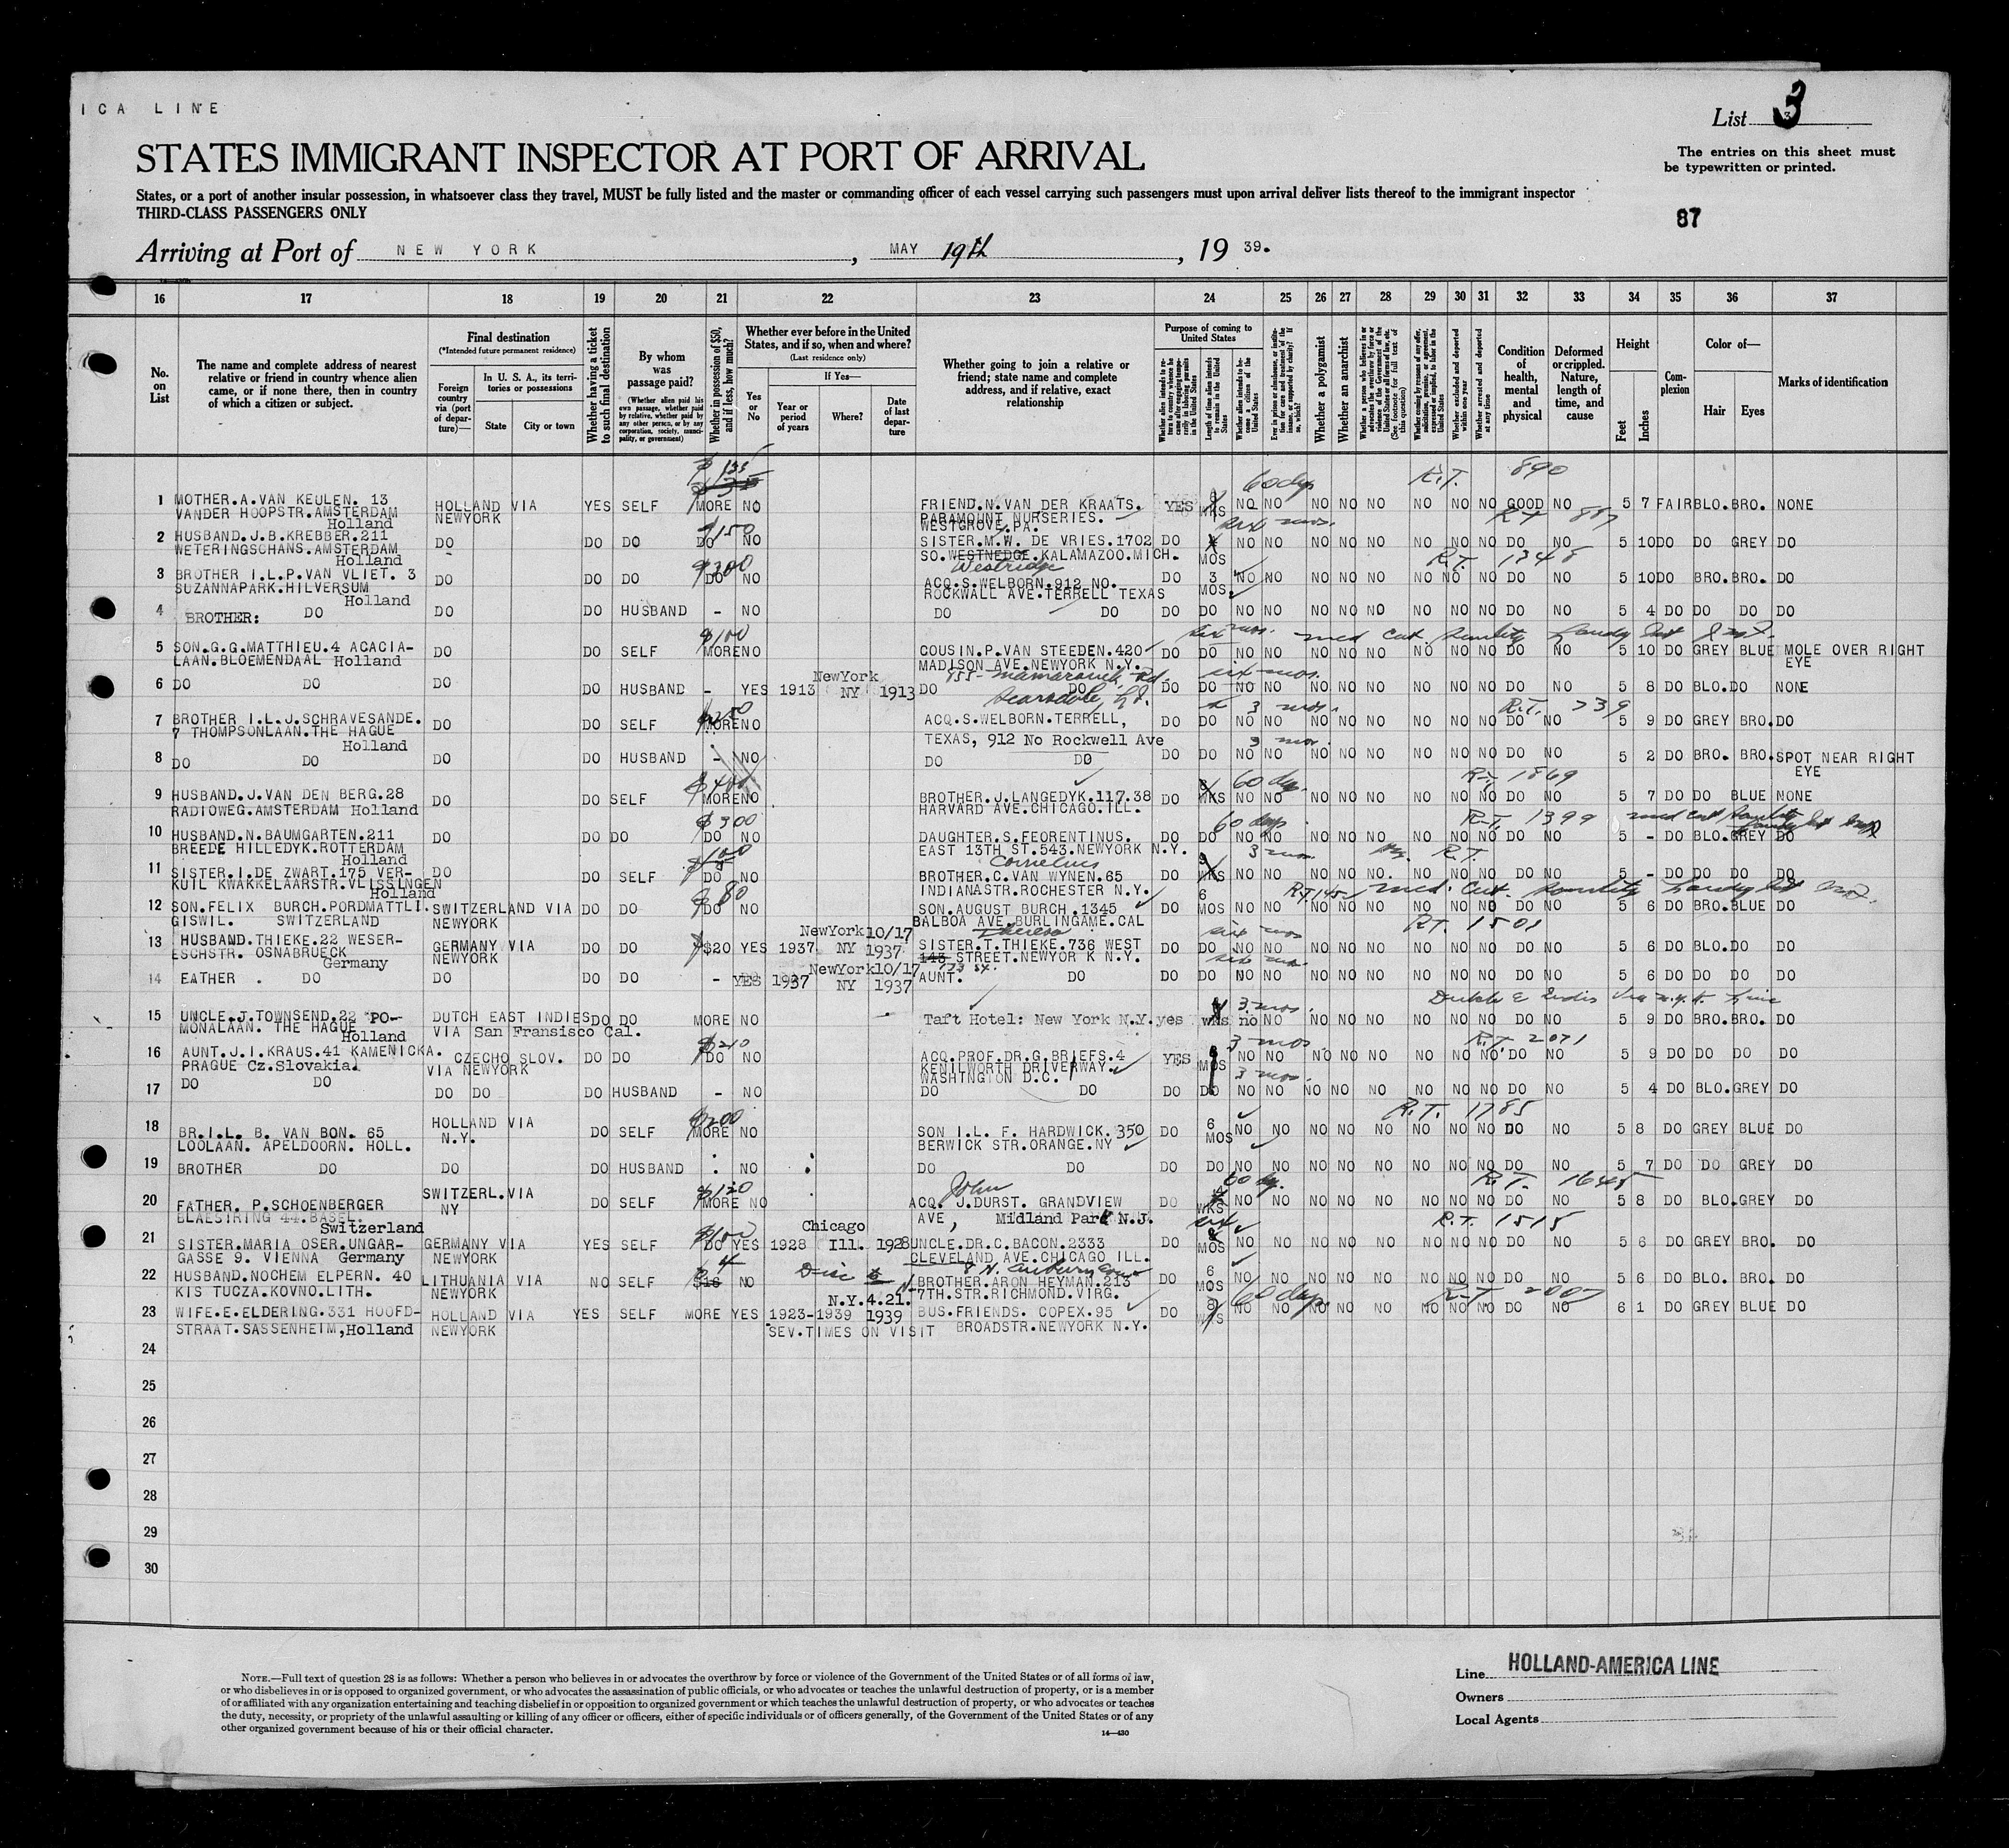 ICA LINE
List 3
STATES IMMIGRANT INSPECTOR AT PORT OF ARRIVAL
The entries on this sheet must
be typewritten or printed.
States, or a port of another insular possession, in whatsoever class they travel, MUST be fully listed and the master or commanding officer of each vessel carrying such passengers must upon arrival deliver lists thereof to the immigrant inspector
THIRD-CLASS PASSENGERS ONLY
87
Arriving at Port of NEW YORK, MAY 19th, 19 39.
16 17 18 19 20 21 22 23 24 25 26 27 28 29 30 31 32 33 34 35 36 37
No. on List
The name and complete address of nearest relative or friend in country whence alien came, or if none there, then in country of which a citizen or subject.
Final destination
(*Intended future permanent residence)
Foreign country via (port of departure)—
In U. S. A., its territories or possessions
State
City or town
Whether having a ticket to such final destination
By whom was passage paid?
(Whether alien paid his own passage, whether paid by relative, whether paid by any other person, or by any corporation, society, municipality, or government)
Whether in possession of $50, and if less, how much?
Whether ever before in the United States, and if so, when and where?
(Last residence only)
Yes or No
If Yes—
Year or period of years
Where?
Date of last departure
Whether going to join a relative or friend; state name and complete address, and if relative, exact relationship
Purpose of coming to United States
Length of time alien intends to remain in the United States
Whether alien intends to become a citizen of the United States
Whether a polygamist
Whether an anarchist
Whether excluded and deported within one year
Whether arrested and deported at any time
Condition of health, mental and physical
Deformed or crippled. Nature, length of time, and cause
Height
Feet
Inches
Complexion
Color of—
Hair
Eyes
Marks of identification
$ 60 dys R.T. 890
1 MOTHER.A.VAN KEULEN. 13 HOLLAND VIA YES SELF MORE NO FRIEND.N.VAN DER KRAATS. YES WKS NO NO NO NO NO NO NO NO GOOD NO 5 7 FAIR BLO. BRO. NONE
VANDER HOOPSTR.AMSTERDAM NEWYORK PARAMOUNT NURSERIES.
Holland WESTGROVE.PA. six mos. R.T. 887
2 HUSBAND.J.B.KREBBER.211 DO DO DO $150 DO NO SISTER.M.W. DE VRIES.1702 DO MOS NO NO NO NO NO NO NO NO DO NO 5 10 DO DO GREY DO
WETERINGSCHANS.AMSTERDAM SO.WESTNEDGE.KALAMAZOO.MICH.
Holland $300 Westridge R.T. 1348
3 BROTHER I.L.P.VAN VLIET. 3 DO DO DO DO NO ACQ.S.WELBORN.912 NO. DO 3 MOS NO NO NO NO NO NO NO NO DO NO 5 10 DO BRO. BRO. DO
SUZANNAPARK.HILVERSUM ROCKWALL AVE.TERRELL TEXAS
Holland
4 BROTHER: DO DO DO HUSBAND - NO DO DO DO DO NO NO NO NO NO NO NO NO DO NO 5 4 DO DO DO DO
$100 six mos.
5 SON.G.G.MATTHIEU.4 ACACIA- DO DO SELF MORE NO COUSIN.P.VAN STEEDEN.420 DO DO NO NO NO NO NO NO NO NO DO NO 5 10 DO GREY BLUE MOLE OVER RIGHT EYE
LAAN.BLOEMENDAAL Holland MADISON AVE.NEWYORK N.Y.
NewYork six mos.
6 DO DO DO DO HUSBAND - YES 1913 NY 1913 DO DO DO DO NO NO NO NO NO NO NO NO DO NO 5 8 DO BLO. DO NONE
3 mos. R.T. 739
7 BROTHER I.L.J.SCHRAVESANDE. DO DO SELF MORE NO ACQ.S.WELBORN.TERRELL, DO DO NO NO NO NO NO NO NO NO DO NO 5 9 DO GREY BRO. DO
7 THOMPSONLAAN.THE HAGUE TEXAS, 912 No Rockwell Ave
Holland 3 mos.
8 DO DO DO DO HUSBAND - NO DO DO DO DO NO NO NO NO NO NO NO NO DO NO 5 2 DO BRO. BRO. SPOT NEAR RIGHT EYE
60 dys. R.T. 1869
9 HUSBAND.J.VAN DEN BERG.28 DO DO SELF MORE NO BROTHER.J.LANGEDYK.117.38 DO WKS NO NO NO NO NO NO NO NO DO NO 5 7 DO DO BLUE NONE
RADIOWEG.AMSTERDAM Holland HARVARD AVE.CHICAGO.ILL.
$300 60 dys R.T. 1399
10 HUSBAND.N.BAUMGARTEN.211 DO DO DO DO NO DAUGHTER.S.FEORENTINUS. DO DO NO NO NO NO NO NO NO NO DO NO 5 - DO BLO. GREY DO
BREEDE HILLEDYK.ROTTERDAM EAST 13TH ST.543.NEWYORK N.Y.
Holland Cornelius 3 mos R.T.
11 SISTER.I.DE ZWART.175 VER- DO DO SELF DO NO BROTHER.C.VAN WYNEN.65 DO WKS NO NO NO NO NO NO NO NO DO NO 5 - DO DO DO DO
KUIL KWAKKELAARSTR.VLISSINGEN INDIANASTR.ROCHESTER N.Y.
Holland $80
12 SON.FELIX BURCH.PORDMATTLI. SWITZERLAND VIA DO DO DO NO SON.AUGUST BURCH.1345 DO 6 MOS NO NO NO NO NO NO NO NO DO NO 5 6 DO BRO. BLUE DO
GISWIL. SWITZERLAND NEWYORK BALBOA AVE.BURLINGAME.CAL
NewYork 10/17 Theresa six mos R.T. 1501
13 HUSBAND.THIEKE.22 WESER- GERMANY VIA DO DO $20 YES 1937 NY 1937 SISTER.T.THIEKE.736 WEST DO DO NO NO NO NO NO NO NO NO DO NO 5 6 DO BLO. DO DO
ESCHSTR. OSNABRUECK NEWYORK 143 STREET.NEWYOR K N.Y.
Germany NewYork 10/17 173 st. six mos.
14 EATHER . DO DO DO DO - YES 1937 NY 1937 AUNT. DO DO DO NO NO NO NO NO NO NO NO DO NO 5 6 DO DO DO DO
3 mos.
15 UNCLE.J.TOWNSEND.22 PO- DUTCH EAST INDIES DO DO MORE NO Taft Hotel: New York N.Y. yes wks no NO NO NO NO NO NO NO DO NO 5 9 DO BRO. BRO. DO
MONALAAN. THE HAGUE VIA San Fransisco Cal.
Holland $210 3 mos R.T. 2071
16 AUNT.J.I.KRAUS.41 KAMENICKA. CZECHO SLOV. DO DO DO NO ACQ.PROF.DR.G.BRIEFS.4 YES MOS NO NO NO NO NO NO NO NO DO NO 5 9 DO DO DO DO
PRAGUE Cz.Slovakia. VIA NEWYORK KENILWORTH DRIVERWAY.
WASHTNGTON D.C. 3 mos.
17 DO DO DO DO DO HUSBAND - NO DO DO DO DO NO NO NO NO NO NO NO NO DO NO 5 4 DO BLO. GREY DO
$200 R.T. 1785
18 BR.I.L. B. VAN BON. 65 HOLLAND VIA DO SELF MORE NO SON I.L. F. HARDWICK.350 DO 6 MOS NO NO NO NO NO NO NO NO DO NO 5 8 DO GREY BLUE DO
LOOLAAN. APELDOORN. HOLL. N.Y. BERWICK STR.ORANGE.NY
19 BROTHER DO DO DO HUSBAND : NO DO DO DO DO NO NO NO NO NO NO NO NO DO NO 5 7 DO DO GREY DO
$120 John 60 dys. R.T. 1645
20 FATHER. P.SCHOENBERGER SWITZERL.VIA DO SELF MORE NO ACQ. J.DURST. GRANDVIEW DO WKS NO NO NO NO NO NO NO NO DO NO 5 8 BLO. GREY DO
BLAESTRING 44.BASEL. NY AVE, Midland Park N.J.
Switzerland $100 Chicago six R.T. 1515
21 SISTER.MARIA OSER.UNGAR- GERMANY VIA YES SELF DO YES 1928 Ill. 1928 UNCLE.DR.C.BACON.2333 DO MOS NO NO NO NO NO NO NO NO DO NO 5 6 DO GREY BRO. DO
GASSE 9. VIENNA Germany NEWYORK CLEVELAND AVE.CHICAGO ILL.
22 HUSBAND.NOCHEM ELPERN. 40 LITHUANIA VIA NO SELF $16 NO BROTHER.ARON HEYMAN.213 DO 6 MOS NO NO NO NO NO NO NO NO DO NO 5 6 DO BLO. BRO. DO
KIS TUCZA.KOVNO.LITH. NEWYORK 7TH.STR.RICHMOND.VIRG.
N.Y. 4.21. 60 dys. R.T. 2007
23 WIFE.E.ELDERING.331 HOOFD- HOLLAND VIA YES SELF MORE YES 1923-1939 1939 BUS.FRIENDS. COPEX.95 DO 8 WKS NO NO NO NO NO NO NO NO DO NO 6 1 DO GREY BLUE DO
STRAAT.SASSENHEIM,Holland NEWYORK SEV.TIMES ON VISIT BROADSTR.NEWYORK N.Y.
24
25
26
27
28
29
30
NOTE.—Full text of question 28 is as follows: Whether a person who believes in or advocates the overthrow by force or violence of the Government of the United States or of all forms of law,
or who disbelieves in or is opposed to organized government, or who advocates the assassination of public officials, or who advocates or teaches the unlawful destruction of property, or is a member
of or affiliated with any organization entertaining and teaching disbelief in or opposition to organized government or which teaches the unlawful destruction of property, or who advocates or teaches
the duty, necessity, or propriety of the unlawful assaulting or killing of any officer or officers, either of specific individuals or of officers generally, of the Government of the United States or of any
other organized government because of his or their official character.
14—430
Line HOLLAND-AMERICA LINE
Owners
Local Agents